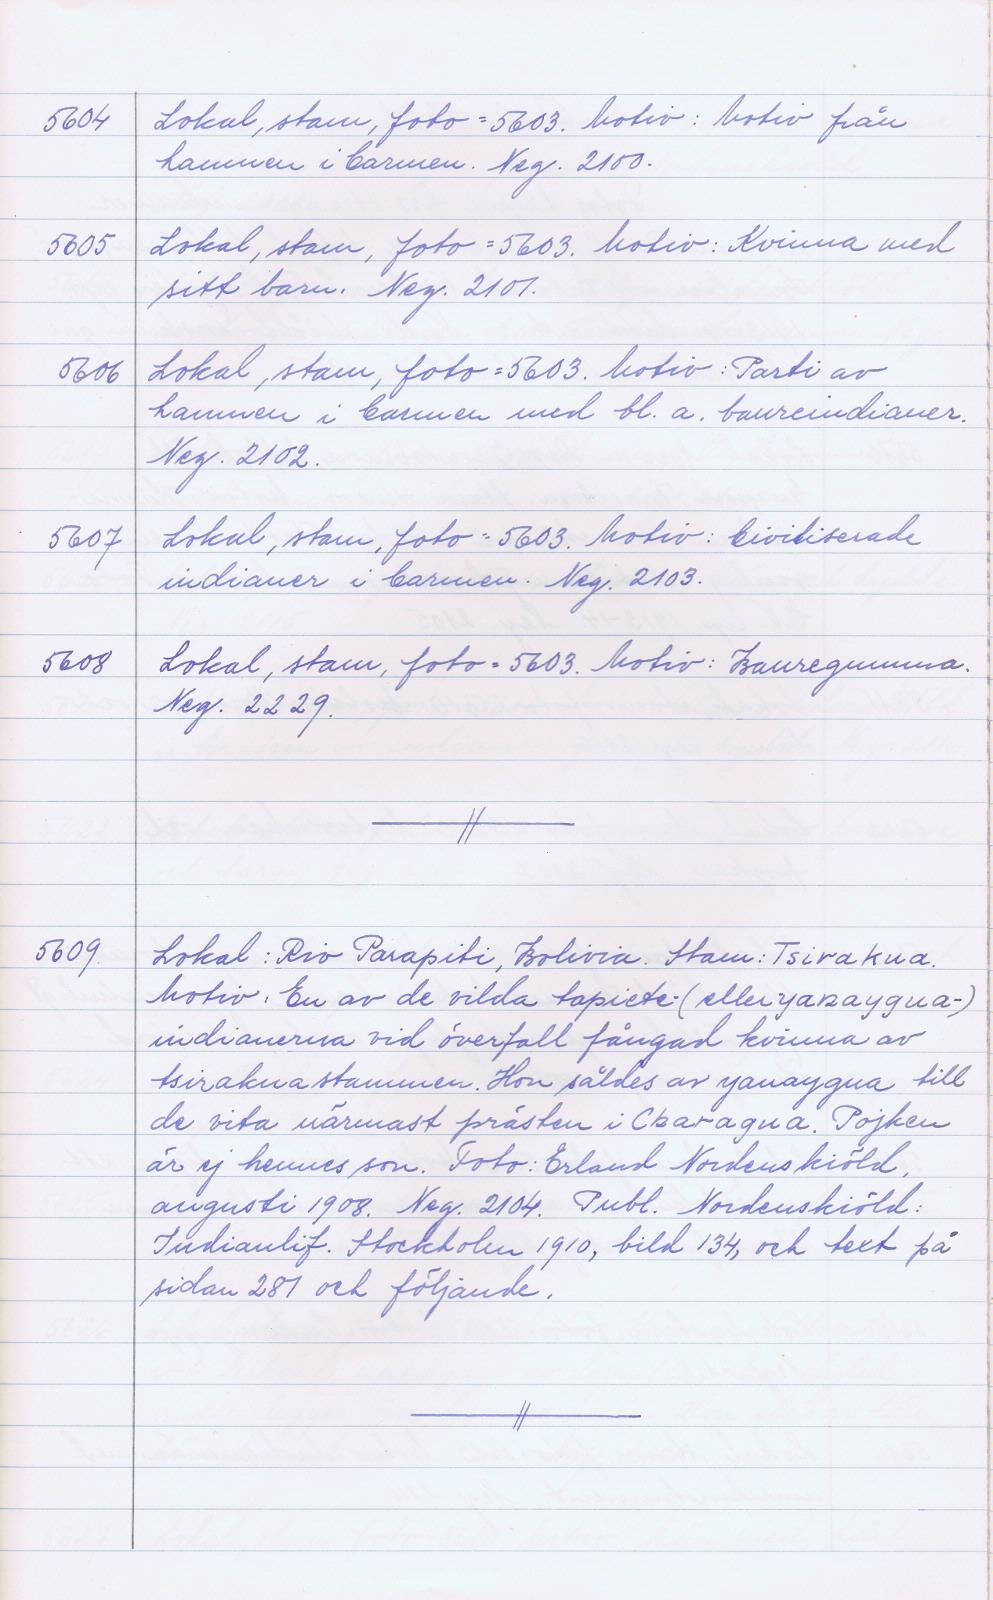 5604 Lokal, stam, foto = 5603. Motiv: Motiv från
hamnen i Carmen. Neg. 2100.
5605 Lokal, stam, foto = 5603. Motiv: Kvinna med
sitt barn. Neg. 2101.
5606 Lokal, stam, foto = 5603. Motiv: Parti av
hamnen i Carmen med bl. a. baureindianer.
Neg. 2102.
5607 Lokal, stam, foto = 5603. Motiv: Civiliserade
indianer i Carmen. Neg. 2103.
5608 Lokal, stam, foto = 5603. Motiv: Bauregumma.
Neg. 2229.
5609. Lokal: Rio Parapiti, Bolivia. Stam: Tsirakua.
Motiv: En av de vilda tapiete- (eller yanaygua-)
indianerna vid överfall fångad kvinna av
tsirakuastammen. Hon såldes av yanaygua till
de vita närmast prästen i Charagua. Pojken
är ej hennes son. Foto: Erland Nordenskiöld,
augusti 1908. Neg. 2104. Publ. Nordenskiöld:
Indianlif. Stockholm 1910, bild 134, och text på
sidan 281 och följande.